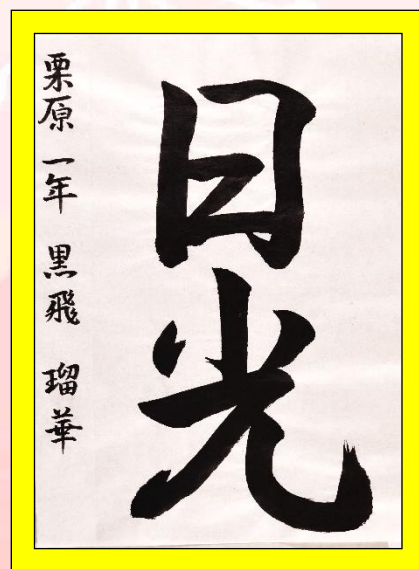 日光
栗原 一年 黒飛 瑠華